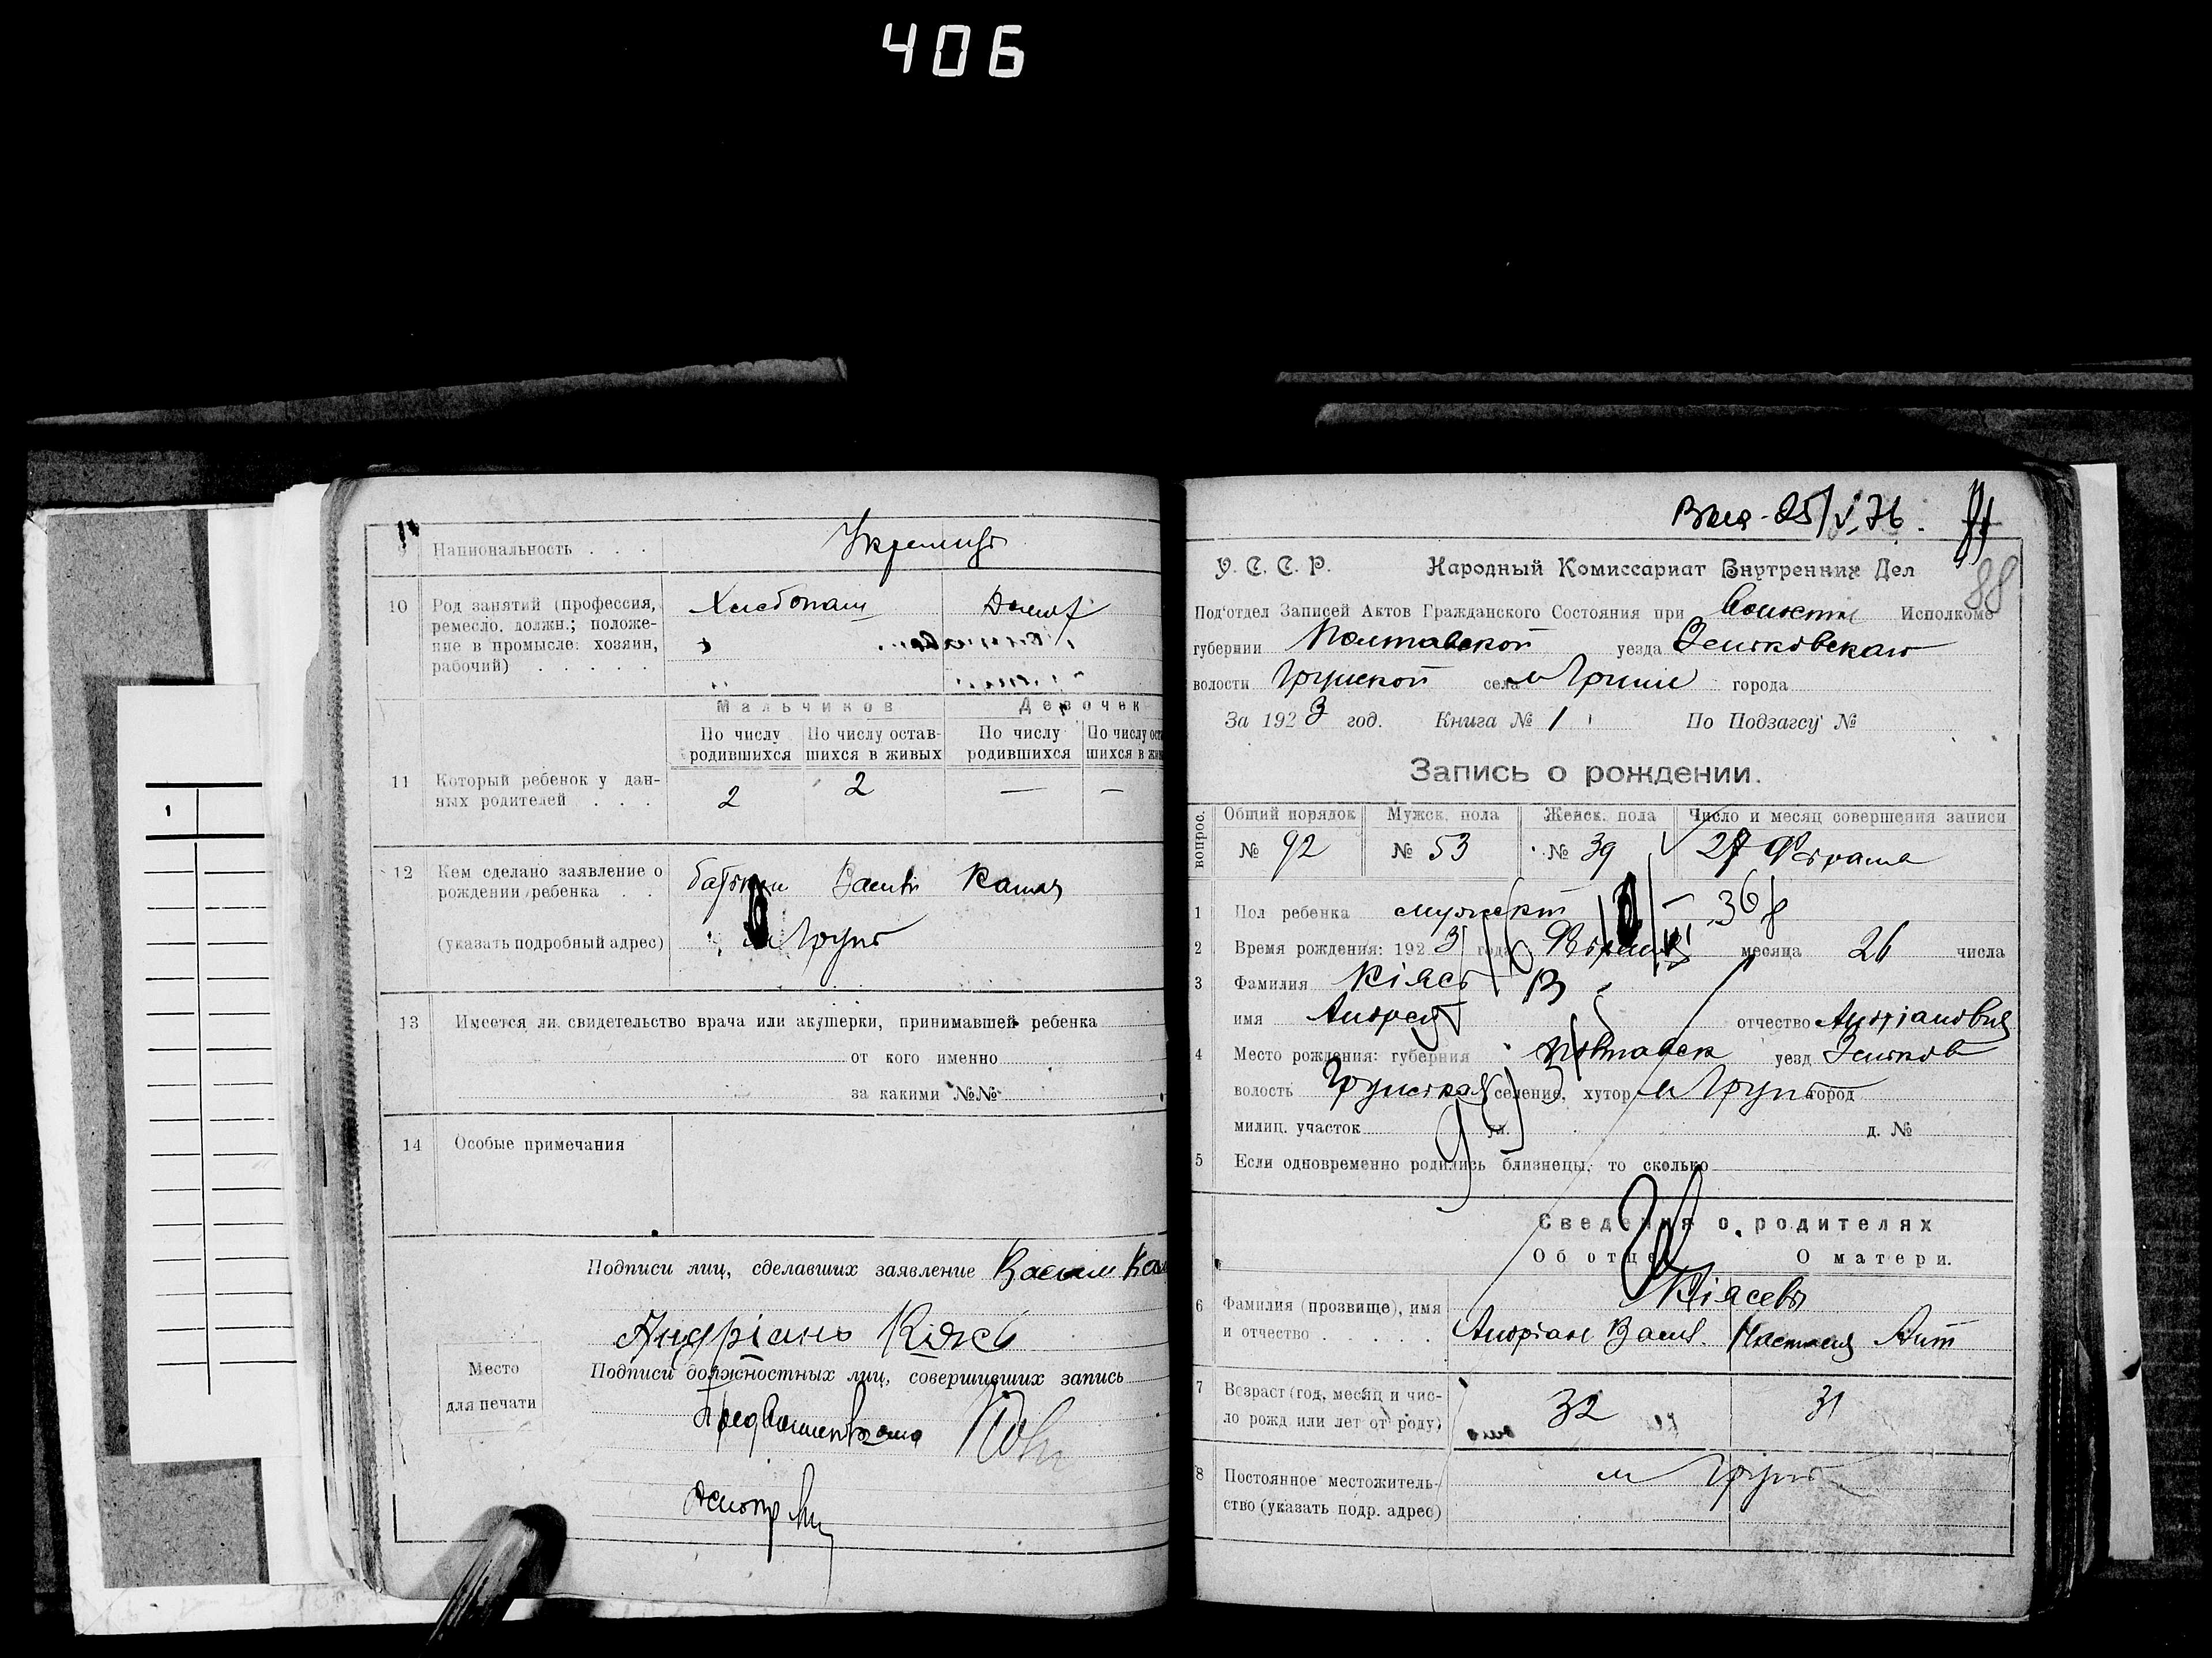 406
9 Национальность . . . Украинцы
10 Род занятий (профессия, ремесло, должн.; положение в промысле: хозяин, рабочий) . . . . .
Хлебопаш Домох
Мальчиков Девочек
По числу родившихся По числу оставшихся в живых По числу родившихся По числу
11 Который ребенок у данных родителей . . . 2 2 — —
12 Кем сделано заявление о рождении ребенка . .
(указать подробный адрес) м Грунь
13 Имеется ли свидетельство врача или акушерки, принимавшей ребенка
от кого именно
за какими №№
14 Особые примечания
Подписи лиц, сделавших заявление
Андріянъ Кіясь
Место для печати
Подписи должностных лиц, совершивших запись
25/V.76.
88
У. С. С. Р. Народный Комиссариат Внутренних Дел
Под'отдел Записей Актов Гражданского Состояния при Исполкоме
губернии Полтавской уезда Зеньковскаго
волости Грунской села м Груни города
За 1923 год. Книга № 1 По Подзагсу №
Запись о рождении.
вопрос. Общий порядок Мужск. пола Женск. пола Число и месяц совершения записи
№ 92 № 53 № 39 27 Февраля
1 Пол ребенка мужской
2 Время рождения: 1923 года Февраля месяца 26 числа
3 Фамилия Кіясь
имя Андрей отчество Андріанович
4 Место рождения: губерния Полтавск уезд Зеньков
волость Грунская селение, хутор м Грунь город
милиц. участок ул. д. №
5 Если одновременно родились близнецы, то сколько
Сведения о родителях
Об отце О матери.
Кіясевы
6 Фамилия (прозвище), имя и отчество . . . . . Андріан Васил. Настасия Ант
7 Возраст (год, месяц и число рожд или лет от роду) 32 31
8 Постоянное местожительство (указать подр. адрес) м Грунь